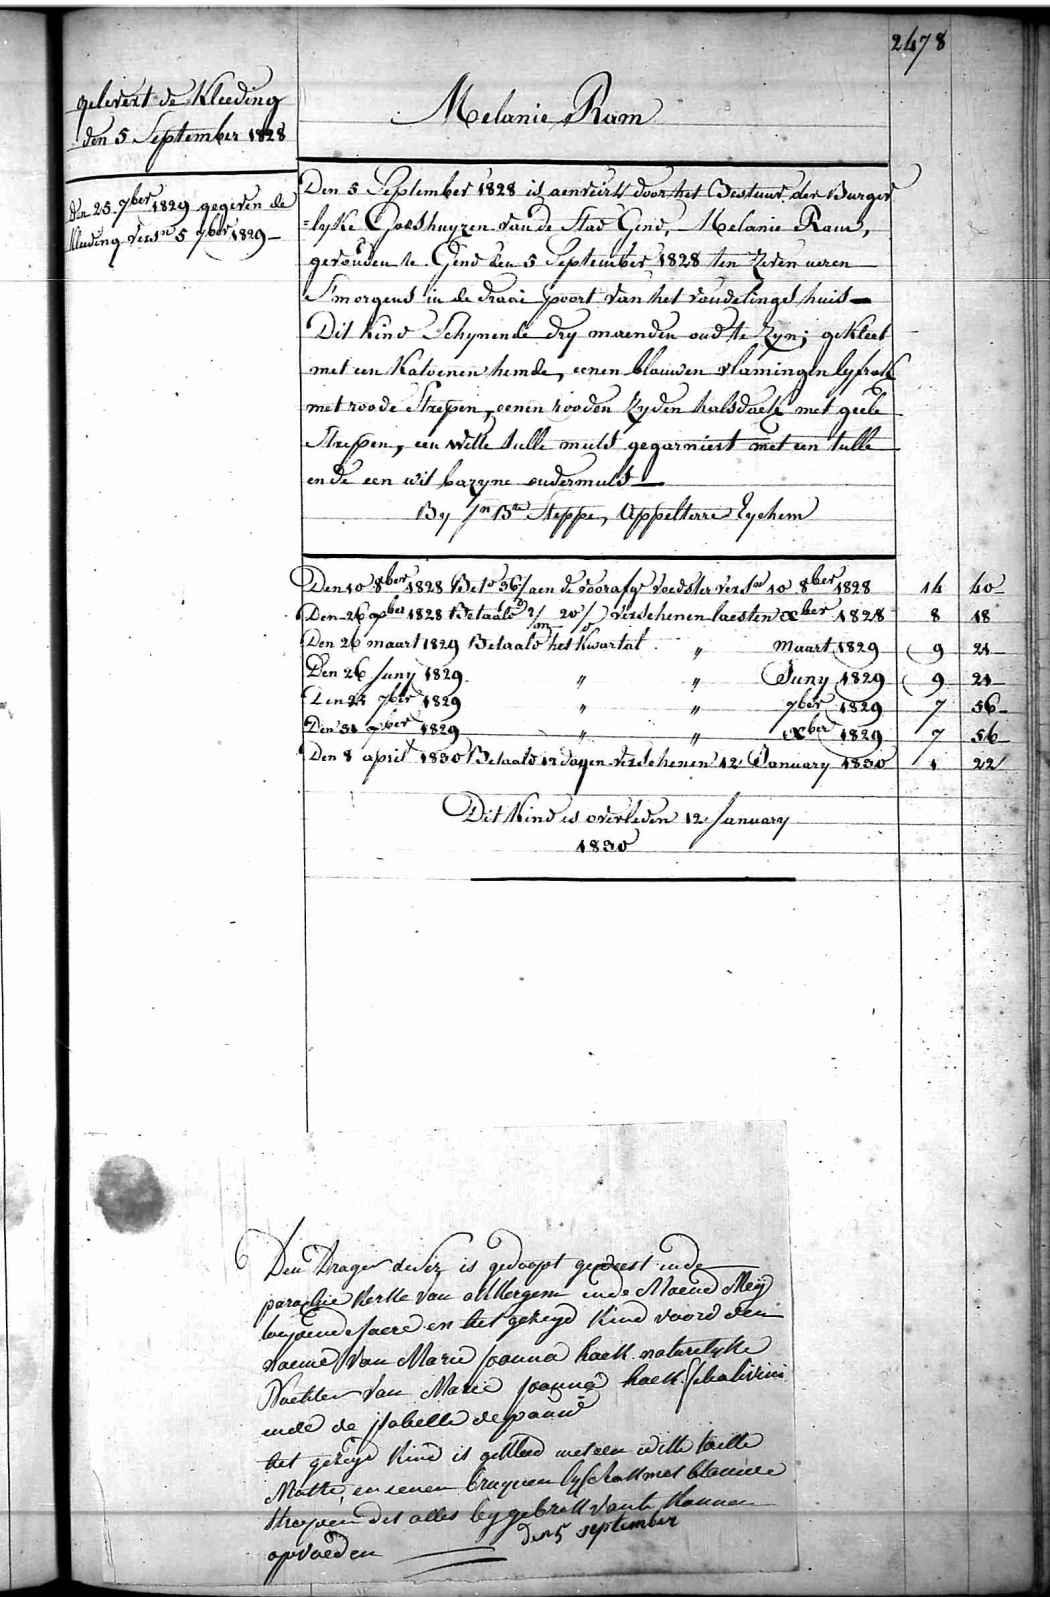 2478
gelevert de Kleeding
den 5 September 1828
Melanie Ram
Den 25 7ber 1829 gegeven de
Kleeding versn 5 7ber 1829
Den 5 September 1828 is aenveirt door het Bestuur der Burger
=lyke Godshuyzen van de Stad Gend, Melanie Ram,
gevonden te Gend den 5 September 1828 ten zeven ueren
s'morgens in de draai poort van het vondelingshuis
Dit Kind Schynende dry maenden oud te Zyn; gekleet
met een Katoenen hemde, eenen blauwen vlamingen lyfrok
met roode Strepen, eenen rooden Zyden halsdoek met geele
Strepen, een witte tulle muts gegarniert met een tulle
en de een wit bazyne ondermuts
By Jn Bte Steppe, Appelterre Eychem
Den 10 8ber 1828 Bet d 36/ aen de voorafge voedster versn 10 8ber 1828 14 40
Den 26 xber 1828 Betaald 2/m 20/ verschenen laesten xber 1828 8 18
Den 26 maart 1829 Betaald het Kwartal " maart 1829 9 21
Den 26 Juny 1829 " " Juny 1829 9 21
Den 25 7ber 1829 " " 7ber 1829 7 56
Den 31 xber 1829 " " xber 1829 7 56
Den 8 april 1830 Betaald 12 dagen verschenen 12 January 1830 1 22
Dit Kind is overleden 12 January
1830
Den Drager deser is gedoopt geweest inde
parochie kerke van Akkergem inde Maend Meij
loopende Jaere en het gezeyd Kind voord den
naeme van Marie Joanna haek naturelyke
Dochter van Marie Joanna haek
ende de isabelle depauw
het gezeyd Kind is gekleed met een witte tulle
Motte en eenen bruynen lyfrok met blauwe
streepen dit alles by gebrek van te konnen
opvoeden den 5 september